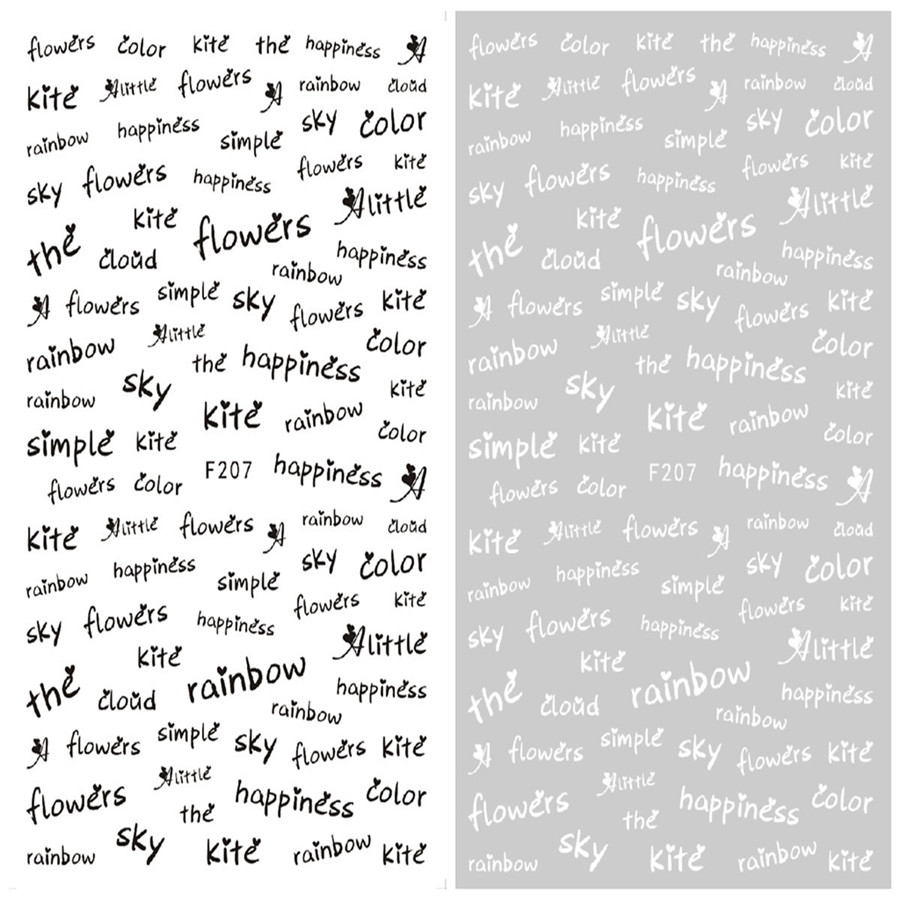 flowers color kite the happiness A
kite A little flowers A rainbow cloud
rainbow happiness simple sky color
sky flowers happiness flowers kite
the kite flowers A little
cloud rainbow happiness
A flowers simple sky flowers kite
rainbow A little the happiness color
rainbow sky kite rainbow kite
simple kite color
flowers color F207 happiness A
kite A little flowers A rainbow cloud
rainbow happiness simple sky color
sky flowers happiness flowers kite
the kite rainbow A little
cloud rainbow happiness
A flowers simple sky flowers kite
flowers A little the happiness color
rainbow sky kite rainbow kite
flowers color kite the happiness A
kite A little flowers A rainbow cloud
rainbow happiness simple sky color
sky flowers happiness flowers kite
the kite flowers A little
cloud rainbow happiness
A flowers simple sky flowers kite
rainbow A little the happiness color
rainbow sky kite rainbow kite
simple kite color
flowers color F207 happiness A
kite A little flowers A rainbow cloud
rainbow happiness simple sky color
sky flowers happiness flowers kite
the kite rainbow A little
cloud rainbow happiness
A flowers simple sky flowers kite
flowers A little the happiness color
rainbow sky kite rainbow kite